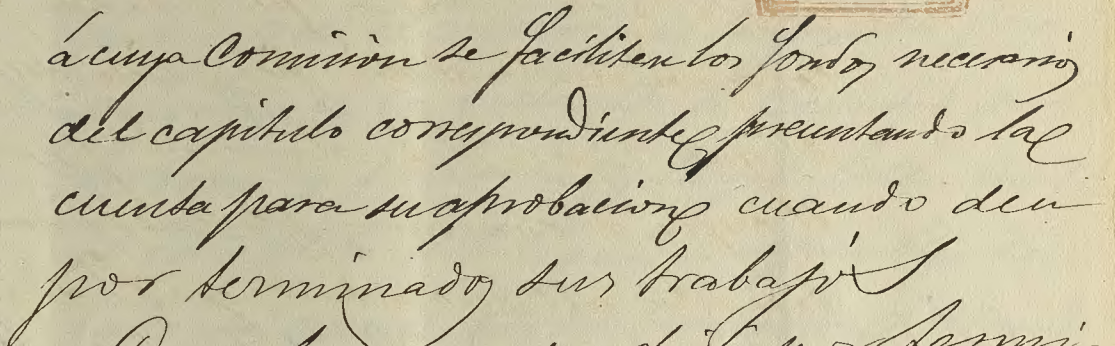 á cuya Comisión se faciliten los fondos necesarios
del capitulo correspondiente presentando la
cuenta para su aprobacion cuando den
por terminados sus trabajos